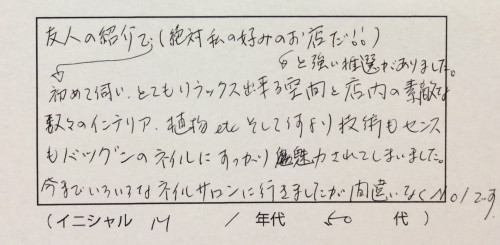 友人の紹介で(絶対私の好みのお店だ!!)
と強い推選がありました。
初めて伺い、とてもリラックス出来る空間と店内の素敵な
数々のインテリア、植物 etc そして何より技術もセンス
もバツグンのネイルにすっかり魅力されてしまいました。
今までいろいろなネイルサロンに行きましたが間違いなくNO1です
(イニシャル M / 年代 50 代)